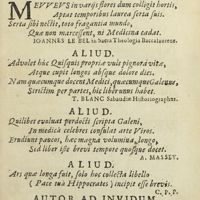 MEVVEVS in varijs flores dum colligit hortis,
Aptas temporibus laurea serta suis.
Serta sibi nectit, toto fragantia mundo,
Quæ non marcessent, ni Medicina cadat.
IOANNES LE BEL in Sacra Theologia Baccalaureus.
ALIVD.
Advolet huc Quisquis propriæ vola pignora vitæ,
Atque cupit longos absque dolore dies.
Nam quæcumque docent Medici, quæcumque Galenus,
Strictim per partes, hic liber unus habet.
T. BLANC Sabaudus Historiographus.
ALIVD.
Quilibet evoluat perdocti scripta Galeni,
In medicâ celebres consulat arte Viros.
Erudiunt paucos, hæc magna volumina, longo,
Sed liber iste brevi tempore quosque docet.
A. MASSEY.
ALIVD.
Ars quæ longa fuit, solo hoc collecta libello
( Pace tuâ Hippocrates ) incipit esse brevis.
C. P. P.
AUTOR AD INVIDUM